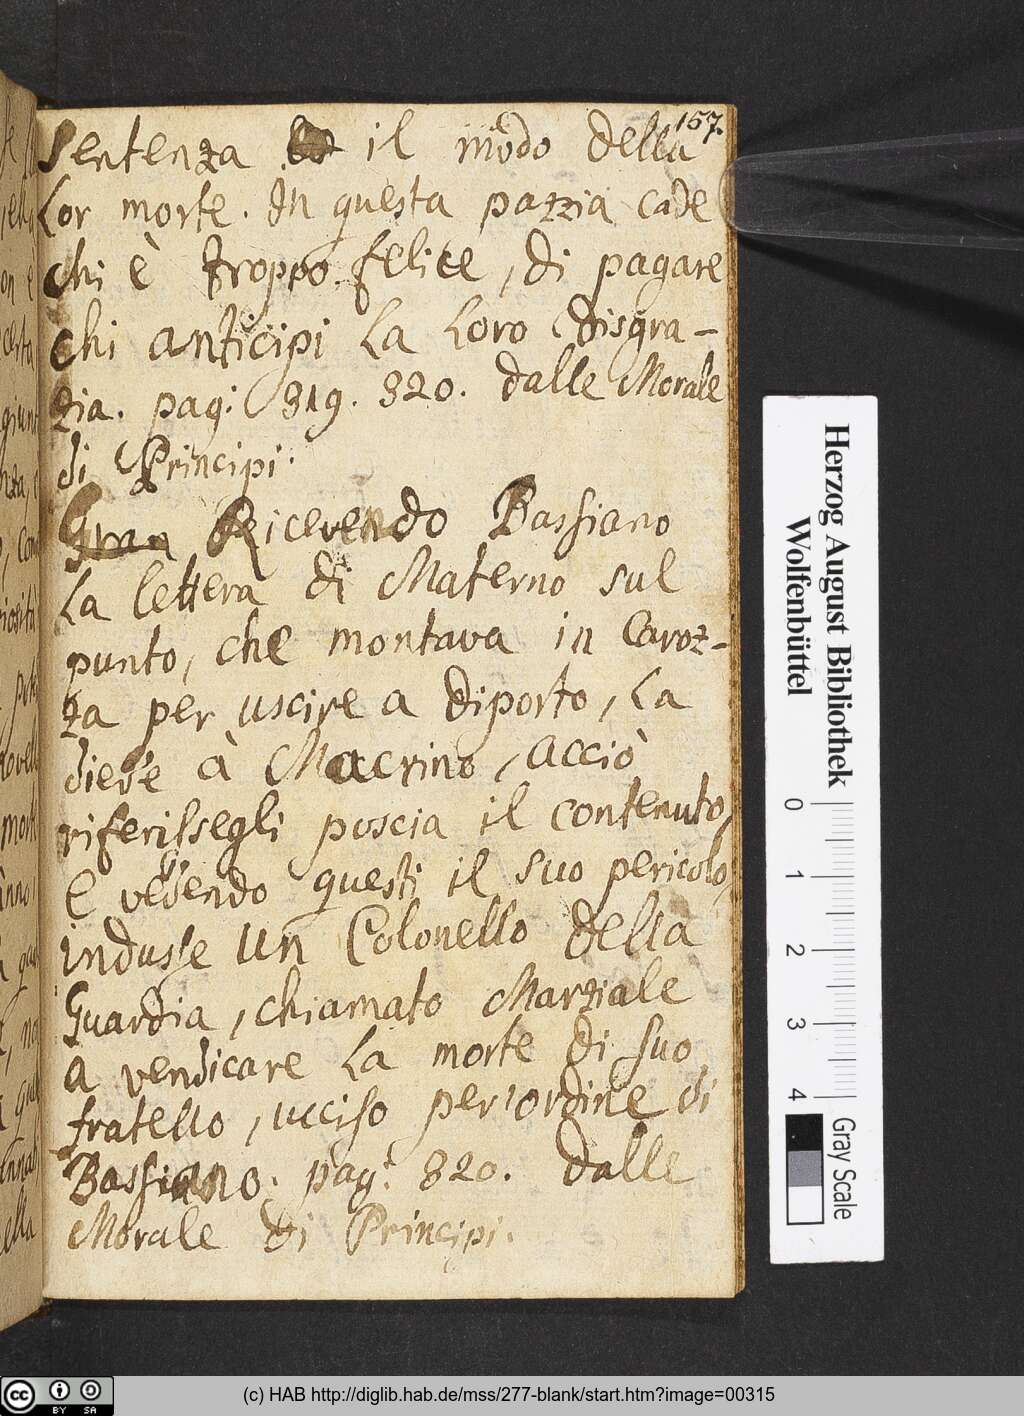 157.
Sentenza il modo della
Lor morte. In questa pazzia cade
chi è troppo felice, di pagare
chi anticipi la loro disgra-
zia. pag: 319. 320. dalle Morale
di Principi.
Gran Ricevendo Bassiano
La lettera di Materno sul
punto, che montava in Caroz-
za per uscire a diporto, la
diese à Macrino, acciò
riferissegli poscia il contenuto,
e vedendo questi il suo pericolo,
indusse un Colonello della
Guardia, chiamato Marziale
a vendicare la morte di suo
fratello, ucciso per'ordine di
Bassiano. pag: 320. dalle
Morale di Principi.
Herzog August Bibliothek
Wolfenbüttel
0 1 2 3 4
Gray Scale
(c) HAB http://diglib.hab.de/mss/277-blank/start.htm?image=00315
cc BY SA